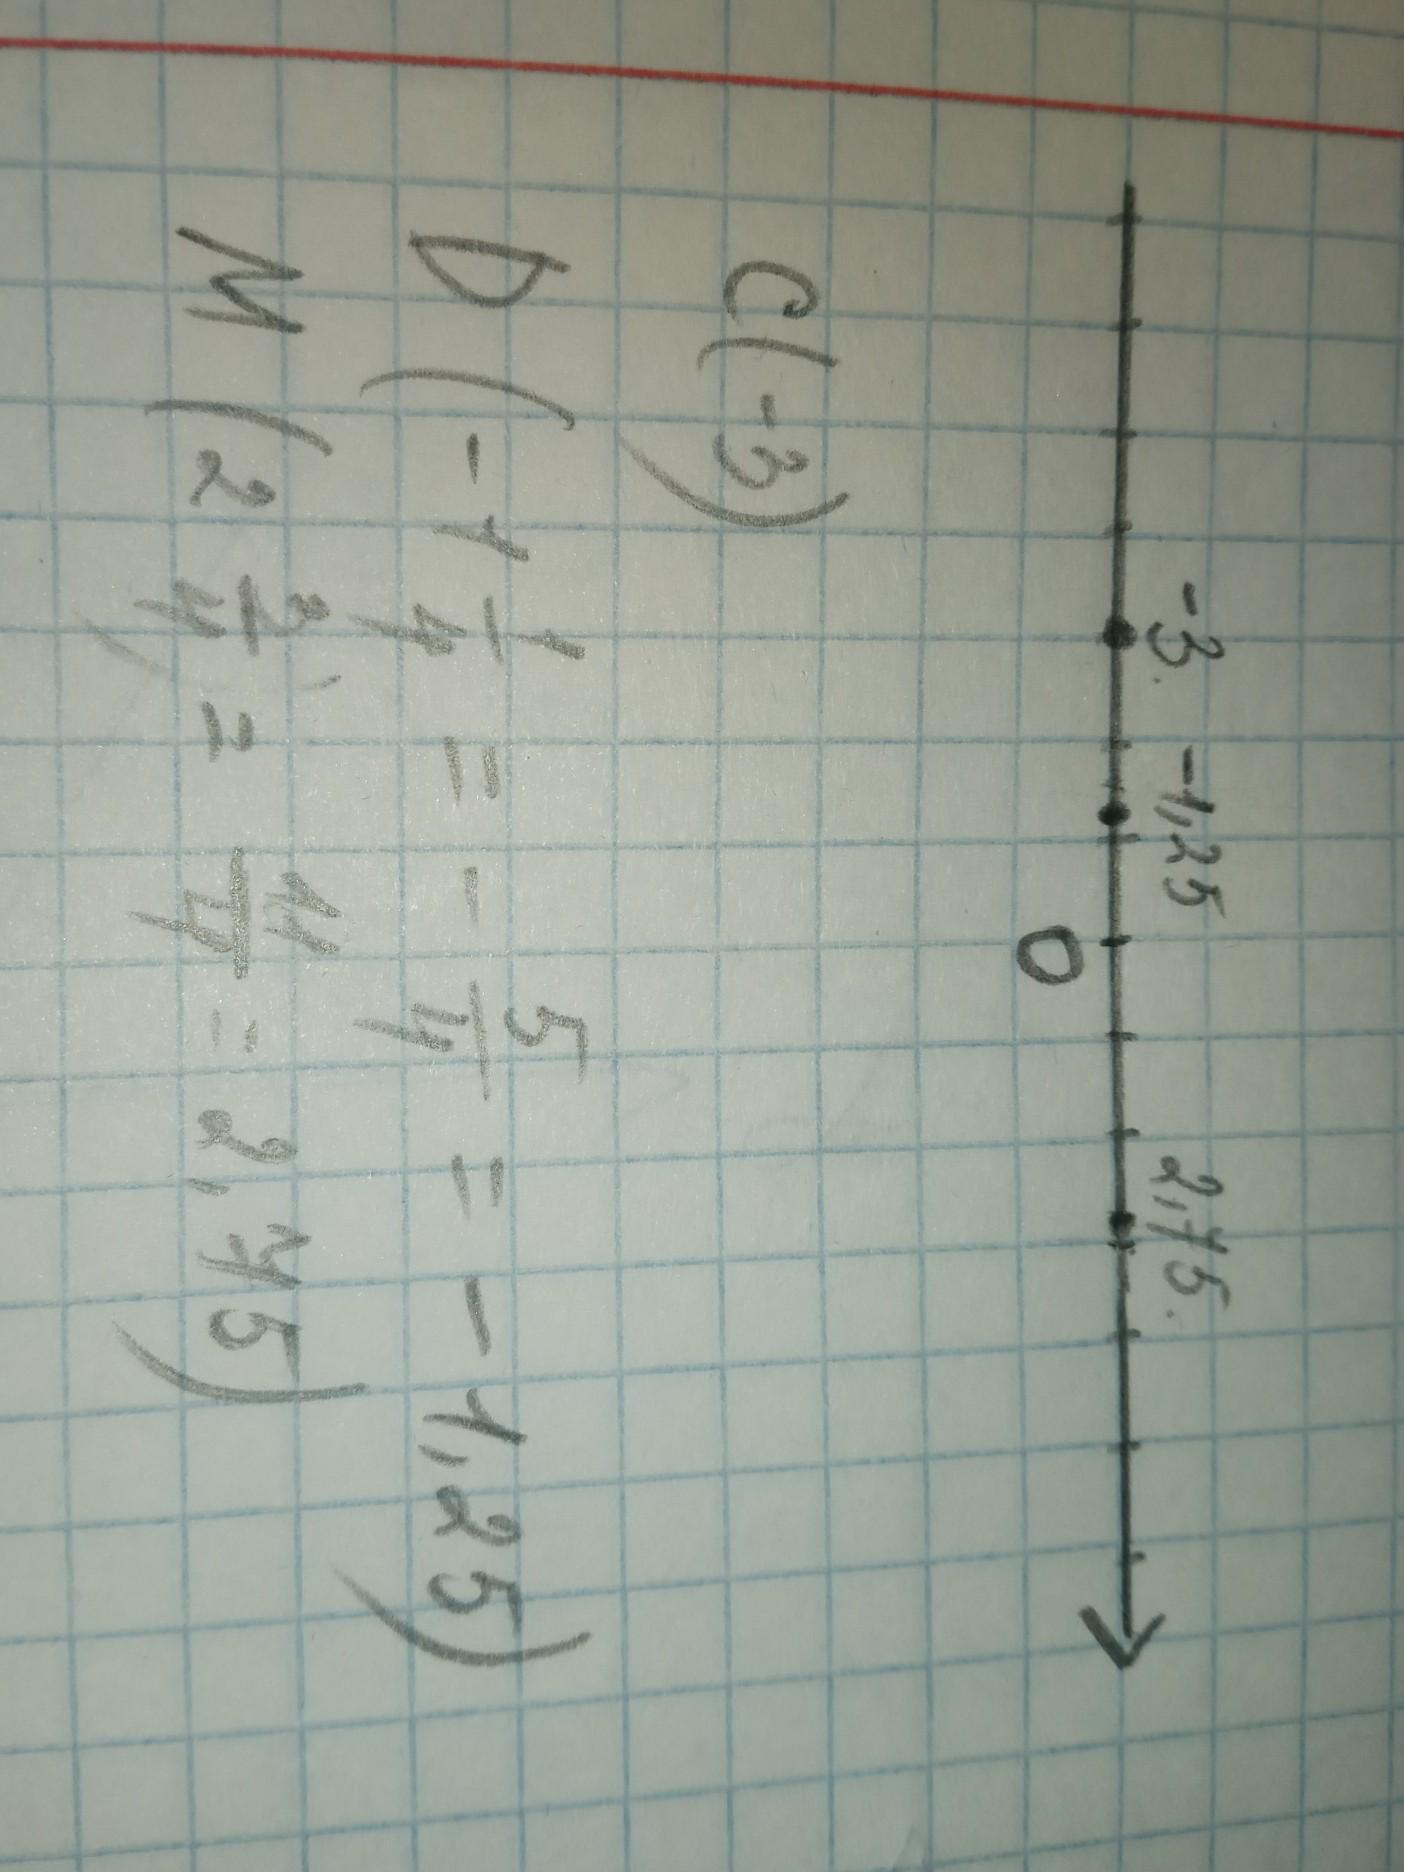 -3. -1,25 2,75.
0
C(-3)
D(-1 1/4 = - 5/4 = -1,25)
M(2 3/4) = 11/4 = 2,75)